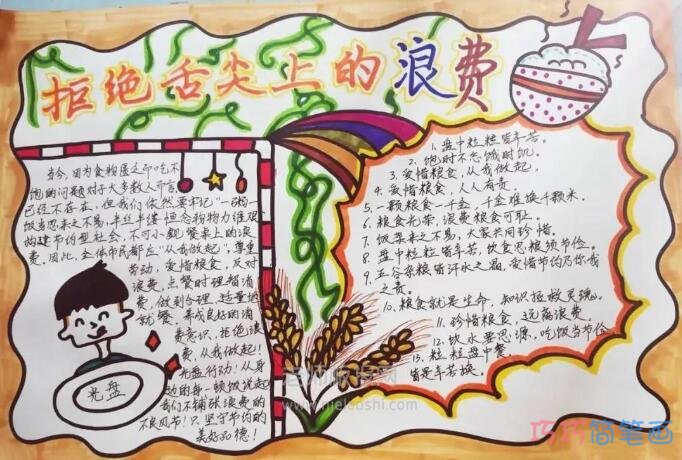 拒绝舌尖上的浪费
当今，因为食物匮乏而吃不
饱的问题对于大多数人而言
已经不存在，但我们依然要牢记"一粥一
饭当思来之不易，半丝半缕恒念物力维艰
构建节约型社会，不可小觑餐桌上的浪
费。因此，全体市民都应"从我做起"，尊重
劳动，爱惜粮食，反对
浪费，点餐时理智消
费，做到合理、适量地
就餐，养成良好的消
费意识，拒绝浪
费，从我做起！
光盘行动！从身
边的每一顿饭说起
我们不铺张浪费的
不良风节！只坚守节约的
美好品德！
光盘
1. 盘中粒粒皆辛苦。
2. 饱时不忘饿时饥。
3. 爱惜粮食，从我做起。
4. 爱惜粮食，人人有责。
5. 一颗粮食一千金，千金难换千颗米。
6. 粮食光荣，浪费粮食可耻。
7. 饭菜来之不易，大家共同珍惜。
8. 盘中粒粒皆辛苦，饮食思粮须节俭。
9. 五谷杂粮皆汗水之晶，爱惜节约乃你我
之责。
10. 粮食就是生命，知识拯救灵魂。
11. 珍惜粮食，远离浪费。
12. 饮水要思源，吃饭当节俭
13. 粒粒盘中餐，
皆是辛苦换。
老师板报网
www.hielaoshi.com
巧巧简笔画